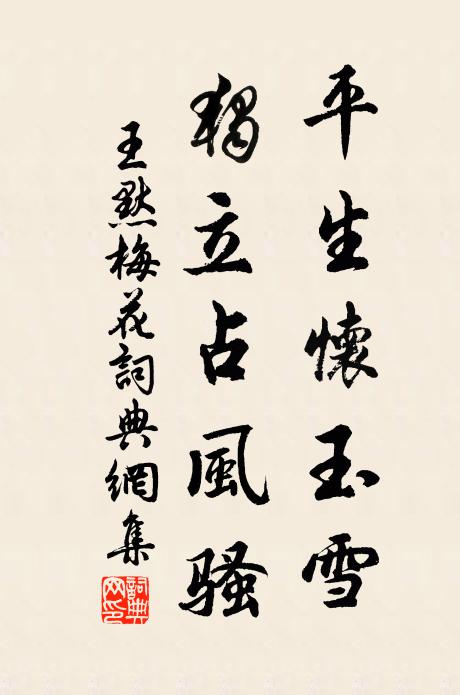 平生懷玉雪
獨立占風騷
王默梅花詞典網集
詞典网印